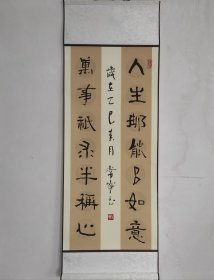 人生那能多如意
萬事祇求半稱心
歲在乙巳春月